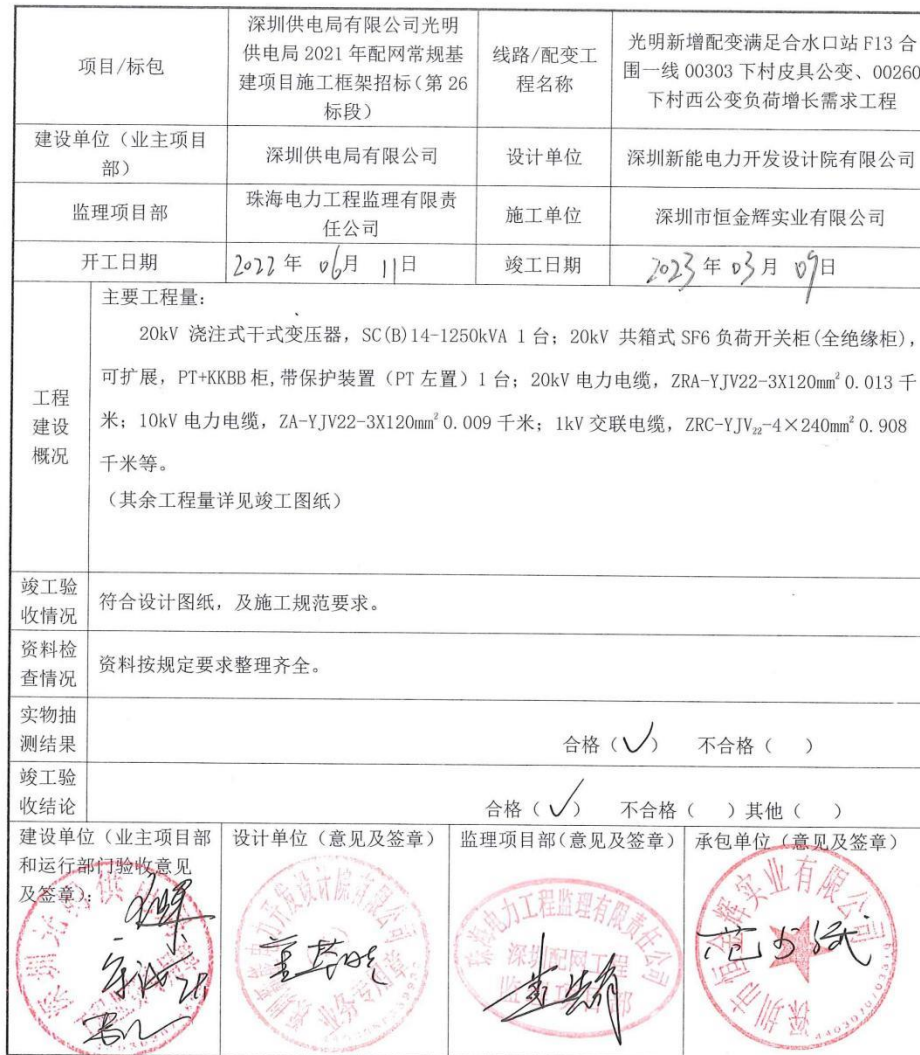 项目/标包
深圳供电局有限公司光明
供电局 2021 年配网常规基
建项目施工框架招标（第 26
标段）
线路/配变工
程名称
光明新增配变满足合水口站 F13 合
围一线 00303 下村皮具公变、00260
下村西公变负荷增长需求工程
建设单位（业主项目
部）
深圳供电局有限公司
设计单位
深圳新能电力开发设计院有限公司
监理项目部
珠海电力工程监理有限责
任公司
施工单位
深圳市恒金辉实业有限公司
开工日期
2022 年 06月 11日
竣工日期
2023 年 03 月 09日
工程
建设
概况
主要工程量：
20kV 浇注式干式变压器，SC(B)14-1250kVA 1 台；20kV 共箱式 SF6 负荷开关柜(全绝缘柜)，
可扩展，PT+KKBB 柜,带保护装置（PT 左置）1 台；20kV 电力电缆，ZRA-YJV22-3X120mm² 0.013 千
米；10kV 电力电缆，ZA-YJV22-3X120mm² 0.009 千米；1kV 交联电缆，ZRC-YJV₂₂-4×240mm² 0.908
千米等。
（其余工程量详见竣工图纸）
竣工验
收情况
符合设计图纸，及施工规范要求。
资料检
查情况
资料按规定要求整理齐全。
实物抽
测结果
合格（✓） 不合格（ ）
竣工验
收结论
合格（✓） 不合格（ ）其他（ ）
建设单位（业主项目部
和运行部门验收意见
及签章）：
设计单位（意见及签章）
业务专用章
监理项目部(意见及签章)
珠海电力工程监理有限责任公司
深圳配网工程
承包单位（意见及签章）
深圳市恒金辉实业有限公司